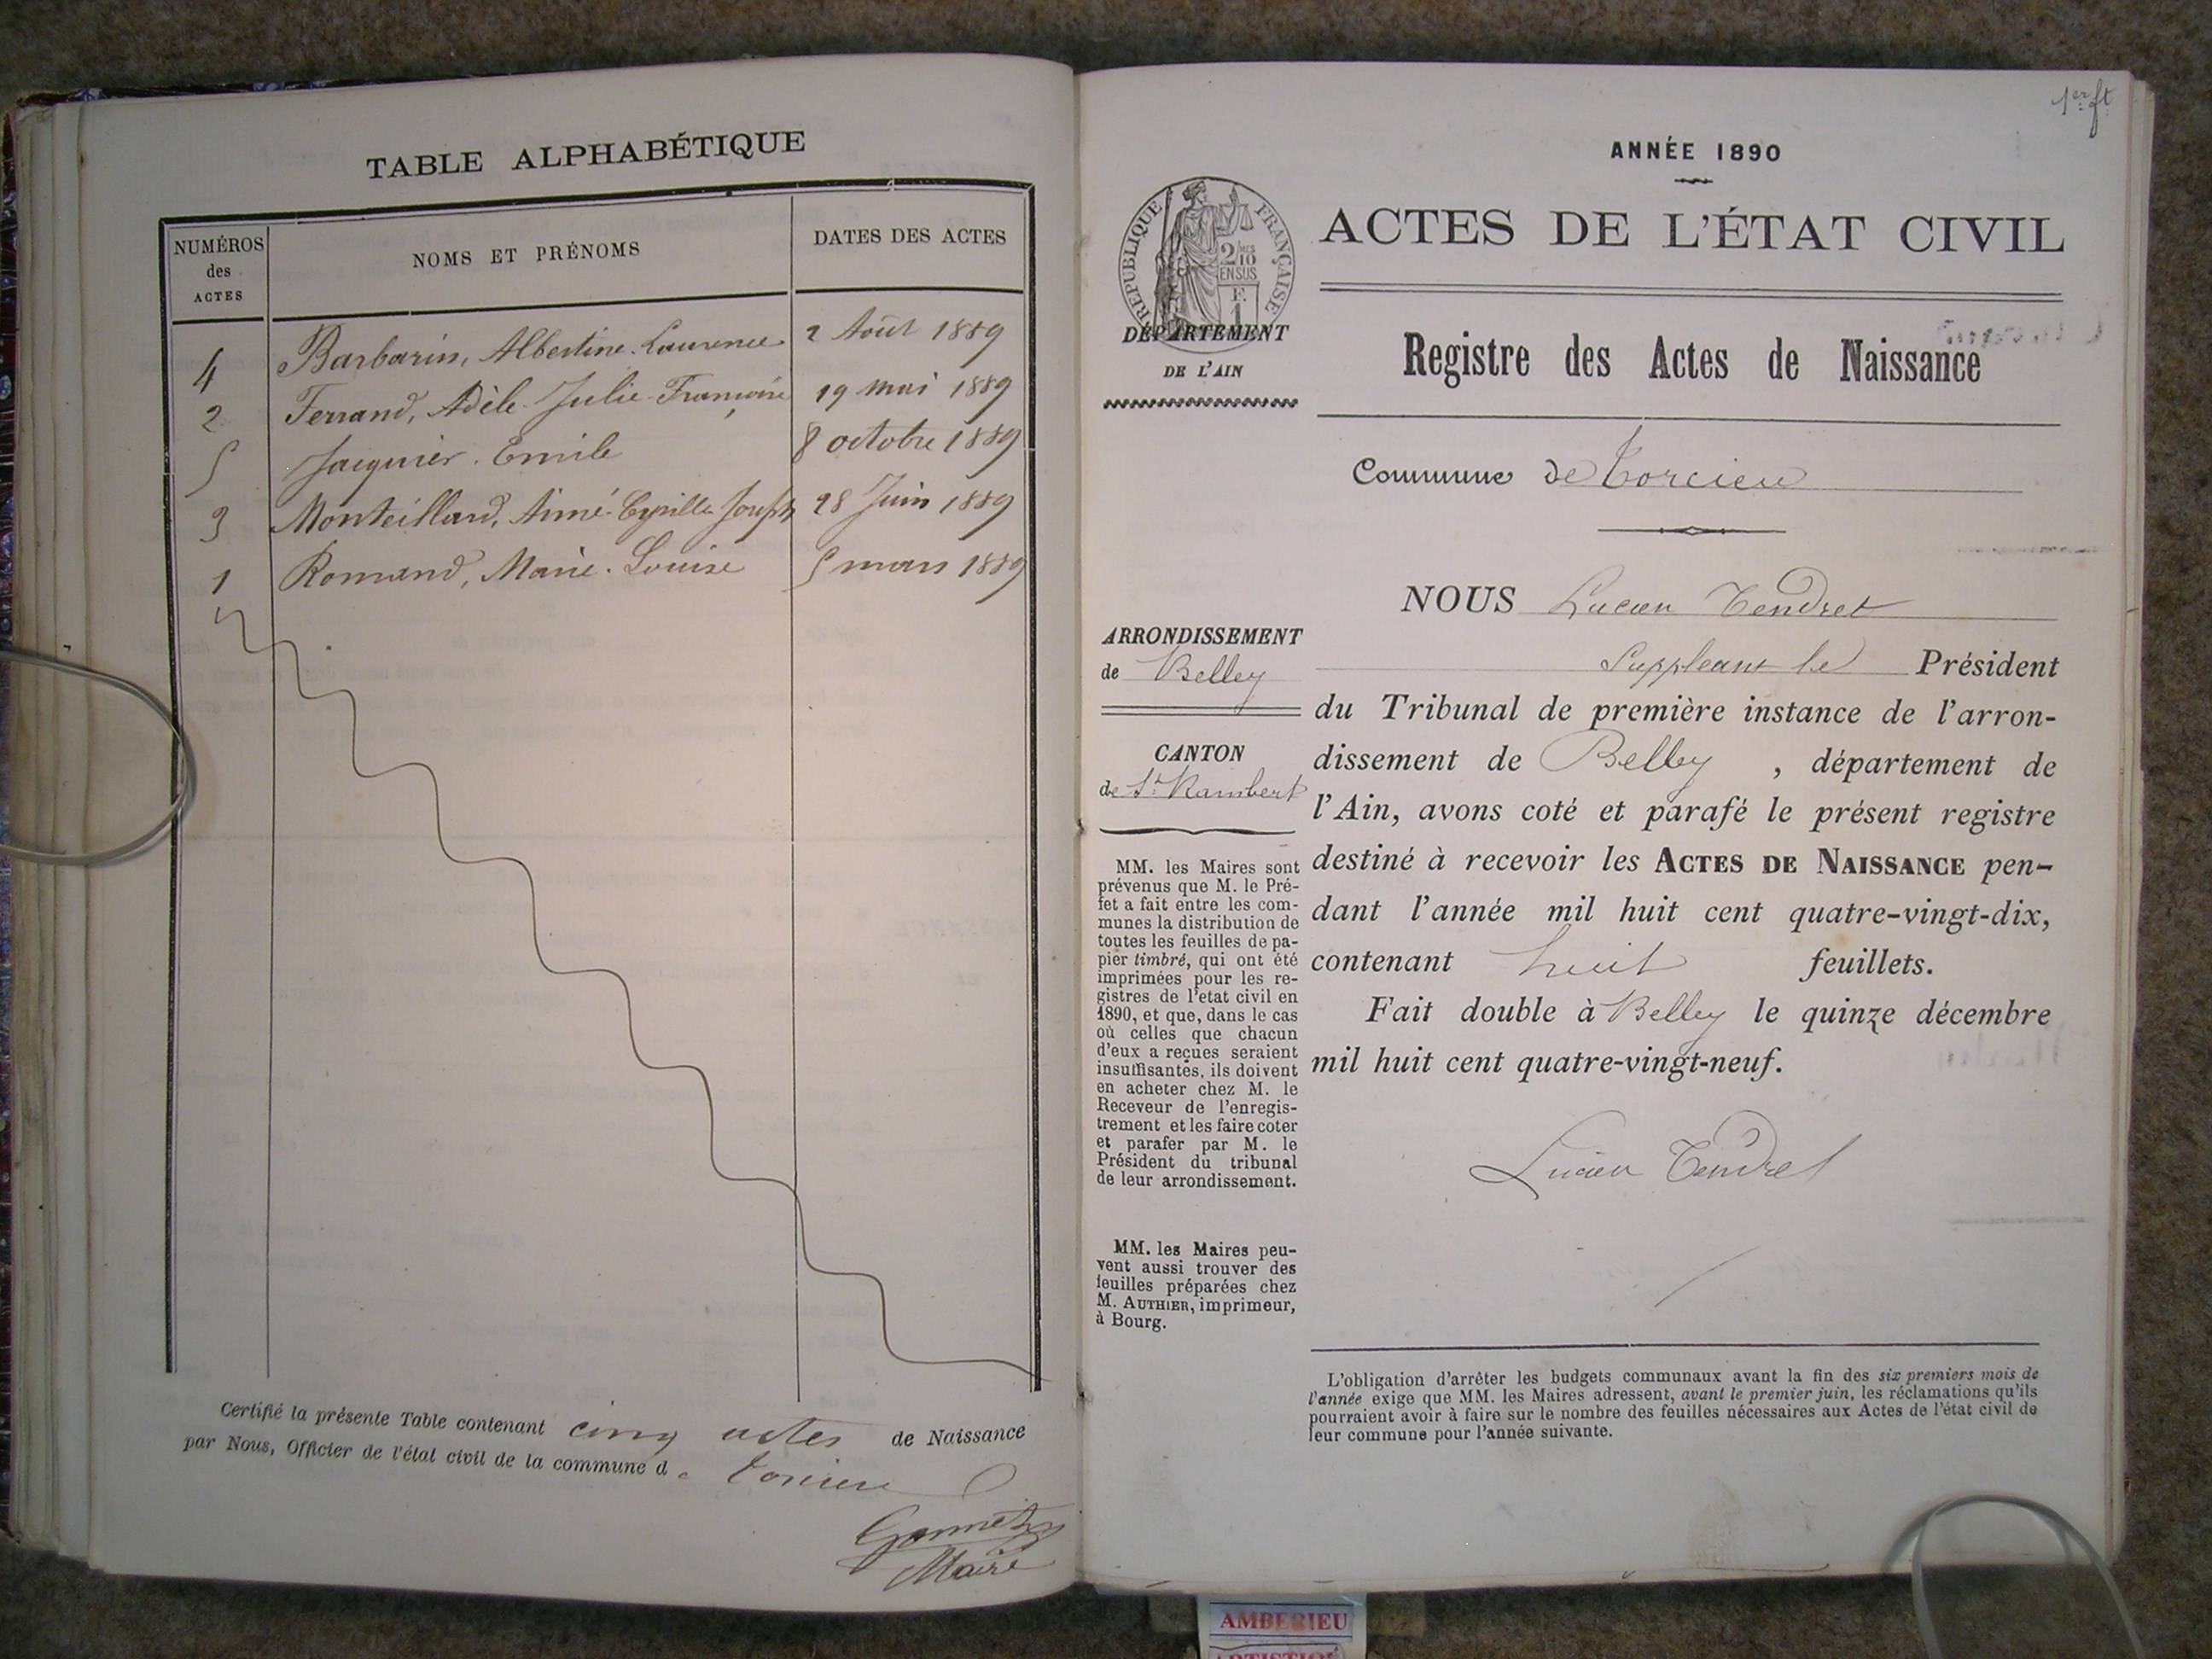 TABLE ALPHABÉTIQUE
NUMÉROS des ACTES NOMS ET PRÉNOMS DATES DES ACTES
4 Barbarin, Albertine. Laurence 2 Août 1889
2 Ferrand, Adèle Julie Françoise 19 mai 1889
5 Jacquier. Emile 8 octobre 1889
3 Monteillard, Aimé Cyrille Joseph 28 Juin 1889
1 Romand, Marie. Louise 5 mars 1889
Certifié la présente Table contenant cinq actes de Naissance
par Nous, Officier de l'état civil de la commune de Torcieu
Maire
1er ft
ANNÉE 1890
RÉPUBLIQUE FRANÇAISE
2/10
EN SUS
F.
1
ACTES DE L'ÉTAT CIVIL
DÉPARTEMENT
DE L'AIN
Registre des Actes de Naissance
Commune de Torcieu
NOUS Lucien Tendret
Suppléant le Président
ARRONDISSEMENT
de Belley
CANTON
de St Rambert
du Tribunal de première instance de l'arron-
dissement de Belley , département de
l'Ain, avons coté et parafé le présent registre
destiné à recevoir les ACTES DE NAISSANCE pen-
dant l'année mil huit cent quatre-vingt-dix,
contenant huit feuillets.
Fait double à Belley le quinze décembre
mil huit cent quatre-vingt-neuf.
Lucien Tendret
MM. les Maires sont
prévenus que M. le Pré-
fet a fait entre les com-
munes la distribution de
toutes les feuilles de pa-
pier timbré, qui ont été
imprimées pour les re-
gistres de l'etat civil en
1890, et que, dans le cas
où celles que chacun
d'eux a reçues seraient
insuffisantes, ils doivent
en acheter chez M. le
Receveur de l'enregis-
trement et les faire coter
et parafer par M. le
Président du tribunal
de leur arrondissement.
MM. les Maires peu-
vent aussi trouver des
feuilles préparées chez
M. AUTHIER, imprimeur,
à Bourg.
L'obligation d'arrêter les budgets communaux avant la fin des six premiers mois de
l'année exige que MM. les Maires adressent, avant le premier juin, les réclamations qu'ils
pourraient avoir à faire sur le nombre des feuilles nécessaires aux Actes de l'état civil de
leur commune pour l'année suivante.
AMBERIEU